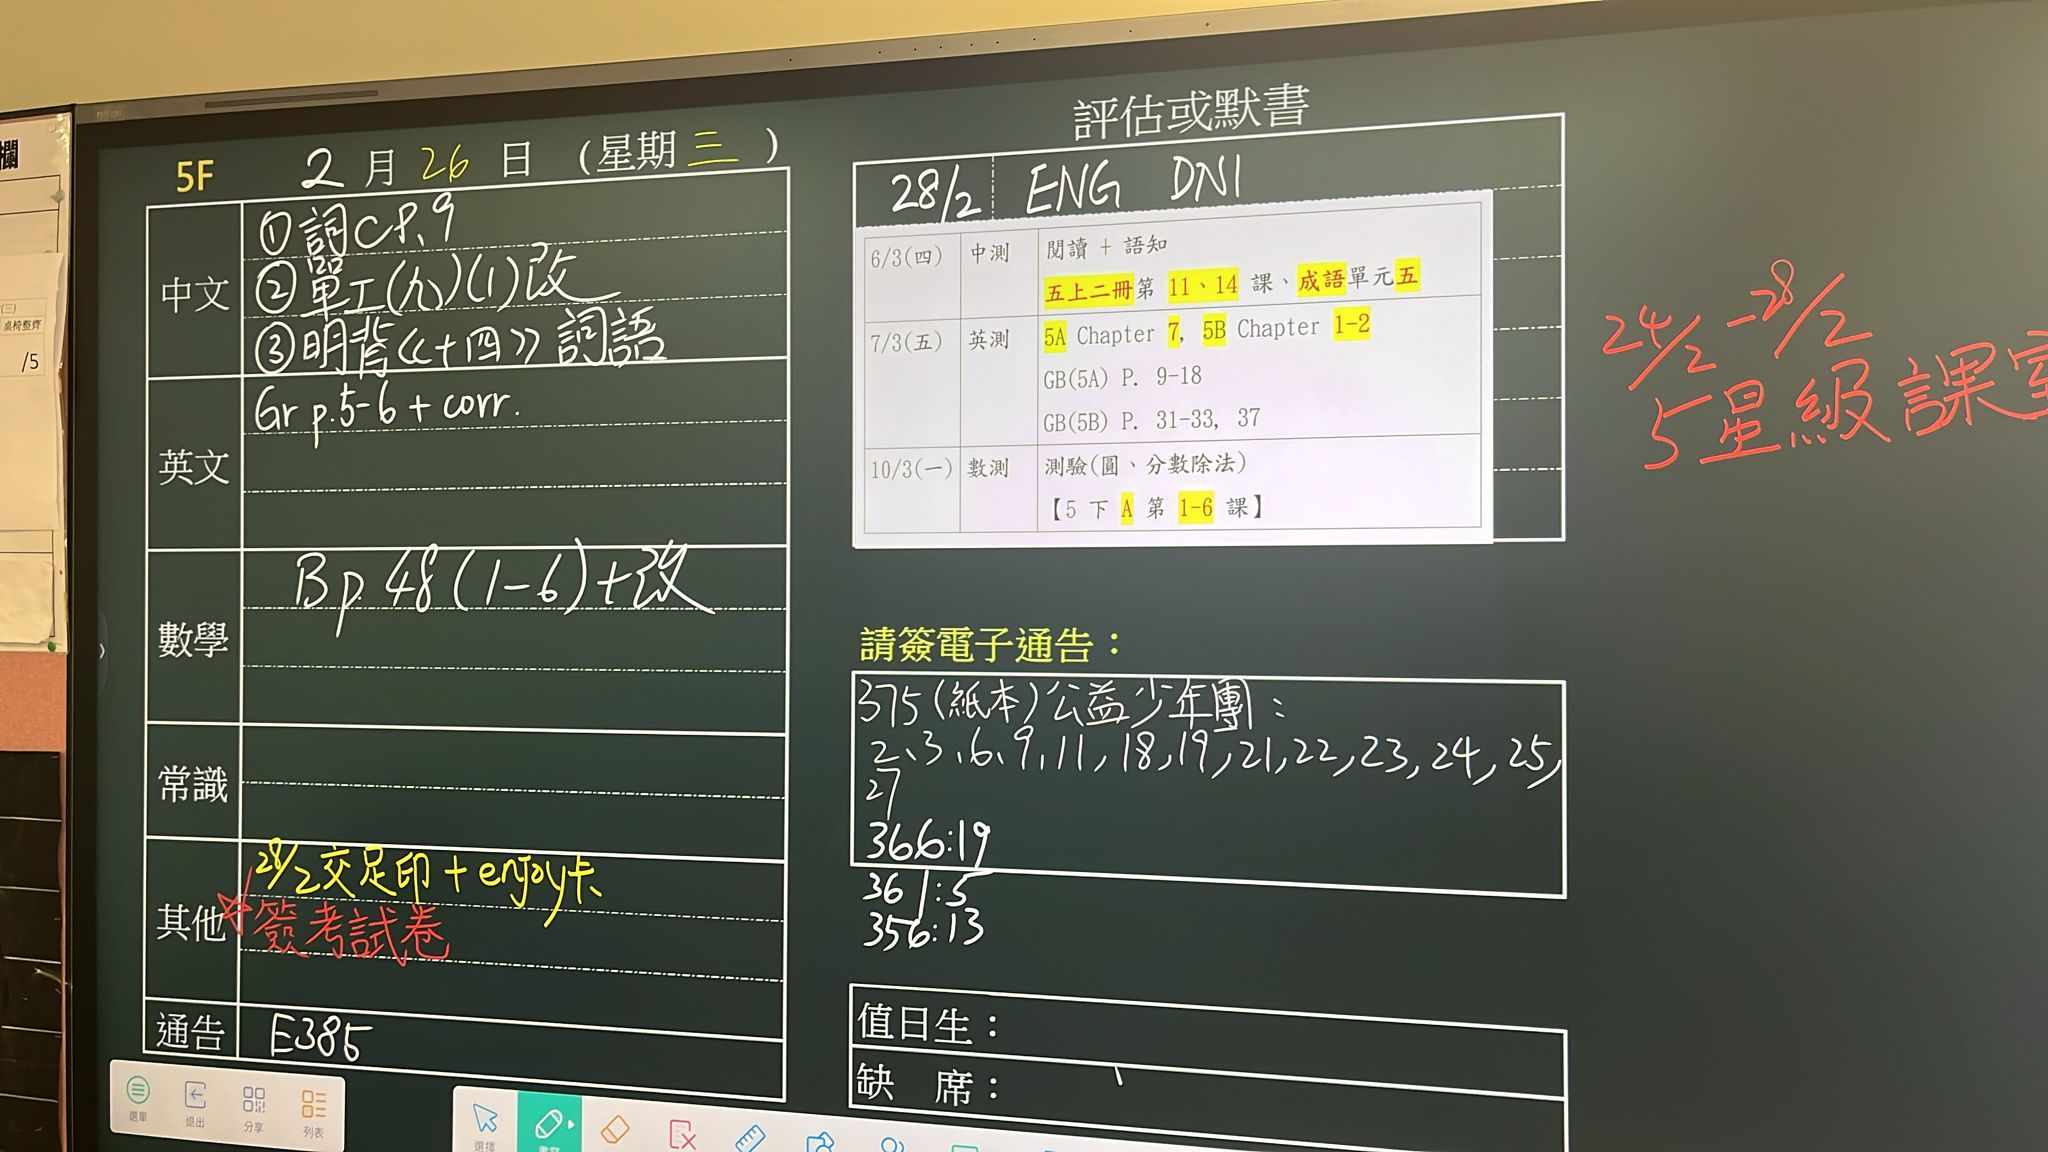 5F 2 月 26 日 (星期 三 )
中文
① 詞C P.9
② 單工(九)(1)改
③ 明背《十四》詞語
英文
Gr p.5-6 + corr.
數學
B p. 48 (1-6)+改
常識
其他
28/2 交足印 + enjoy卡
☆ 簽考試卷
通告
E385
評估或默書
28/2 ENG DN1
6/3(四) 中測 閱讀 + 語知
五上二冊第 11、14 課、成語單元五
7/3(五) 英測 5A Chapter 7, 5B Chapter 1-2
GB(5A) P. 9-18
GB(5B) P. 31-33, 37
10/3(一) 數測 測驗(圓、分數除法)
【5 下 A 第 1-6 課】
請簽電子通告：
375(紙本)公益少年團：
2、3、6、9、11, 18, 19, 21, 22, 23, 24, 25,
27
366:19
361:5
356:13
值日生：
缺 席：
24/2-28/2
5星級課室
欄
(三)
桌椅整齊
/5
選單
退出
分享
列表
選擇